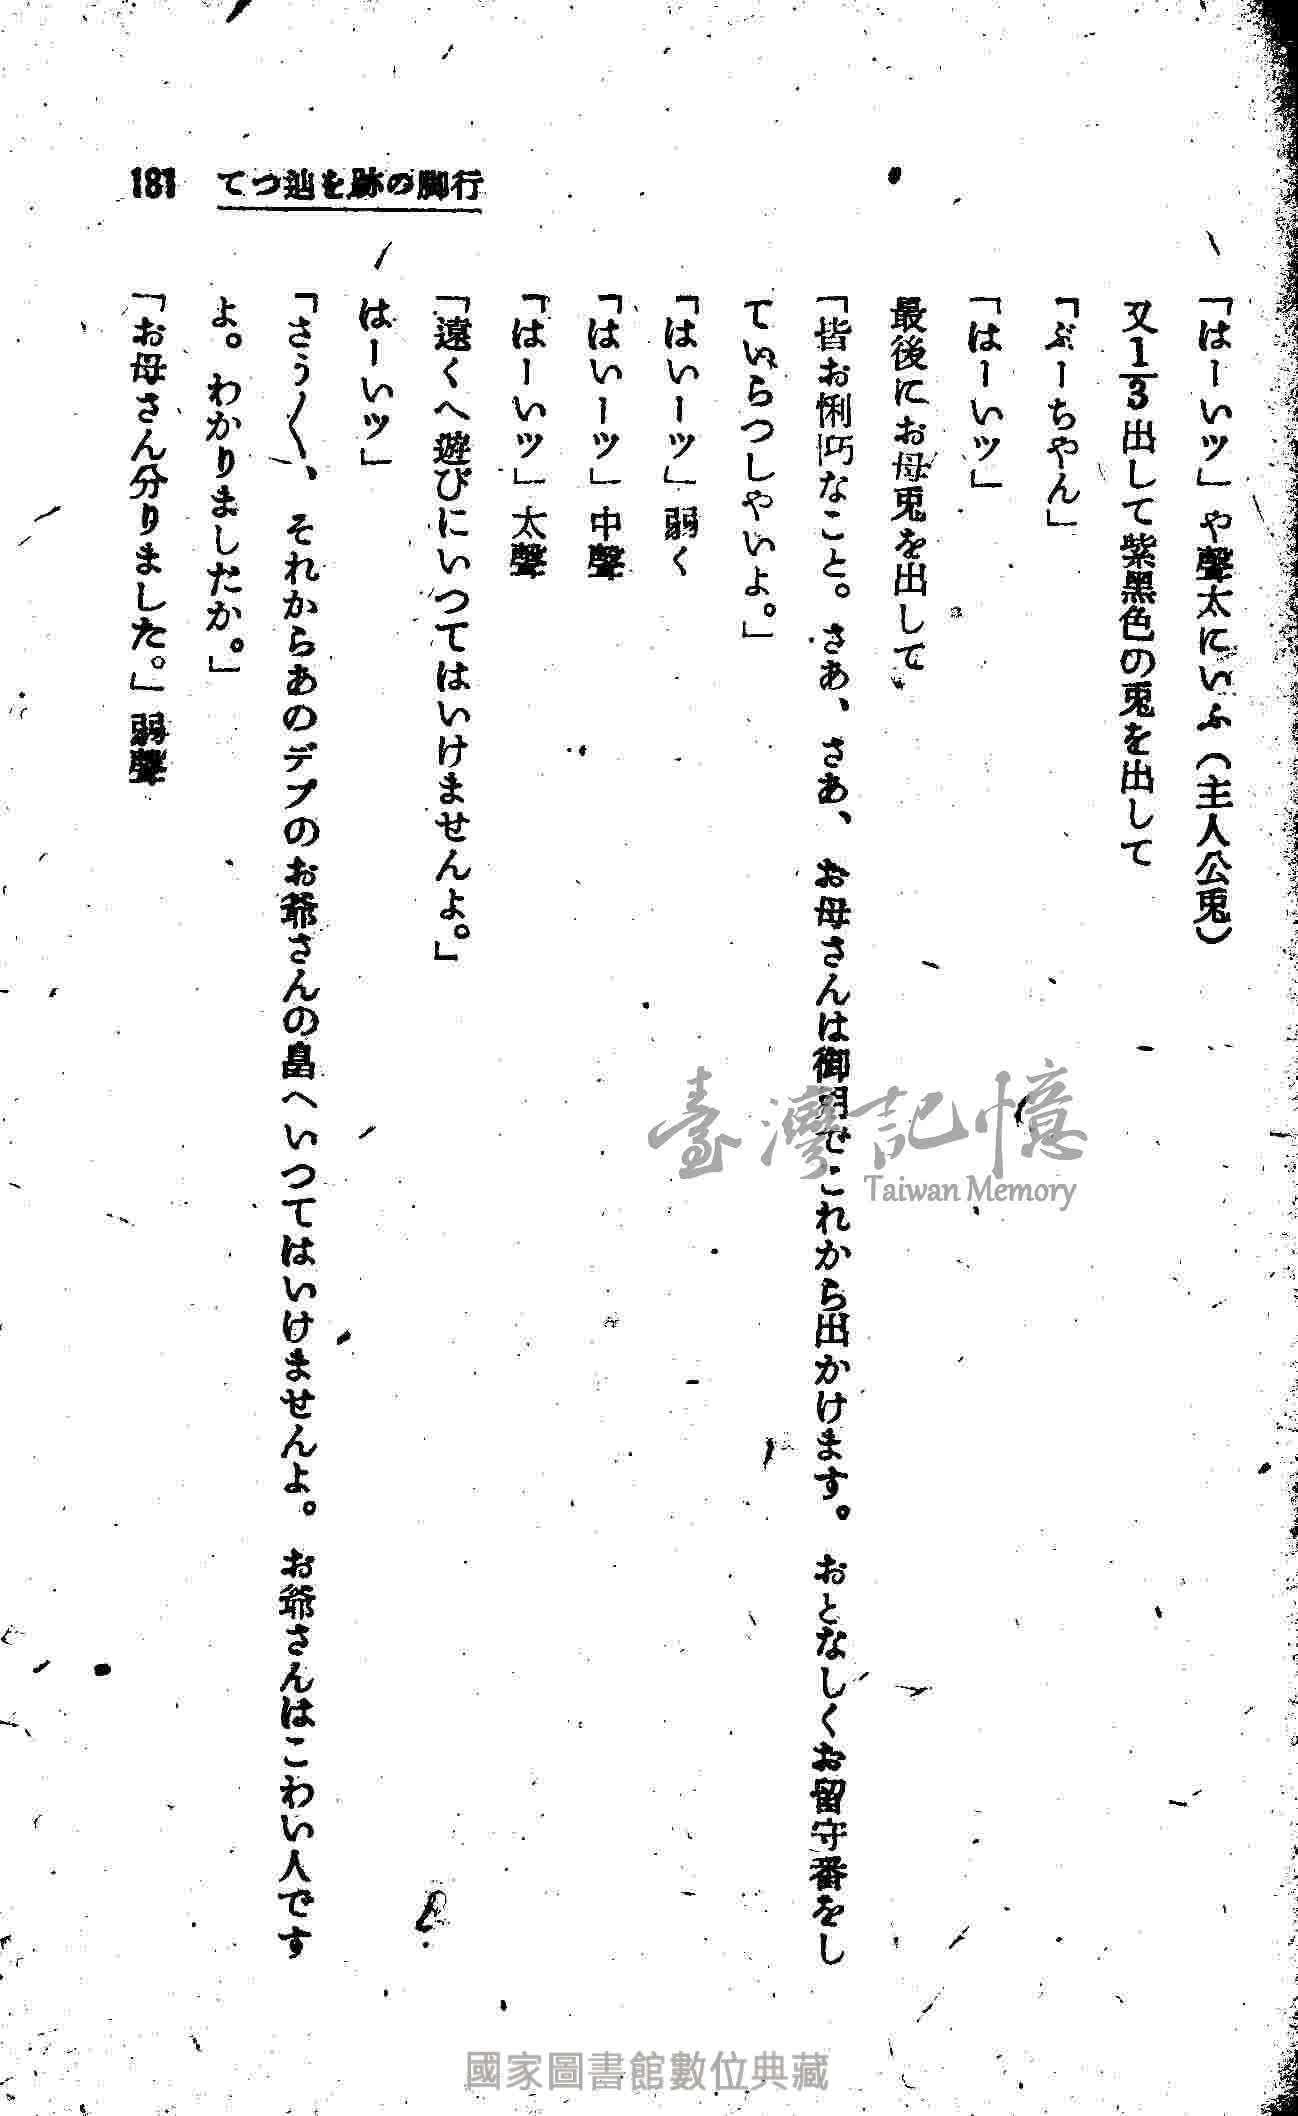 181 てつ辿を跡の脚行
「はーいッ」や聲太にいふ(主人公兎)
又1/3出して紫黑色の兎を出して
「ぶーちやん」
「はーいッ」
最後にお母兎を出して
「皆お悧巧なこと。さあ、さあ、お母さんは御用でこれから出かけます。おとなしくお留守番をし
ていらつしやいよ。」
「はいーッ」弱く
「はいーッ」中聲
「はーいッ」太聲
「遠くへ遊びにいつてはいけませんよ。」
はーいッ」
「さう〱、それからあのデブのお爺さんの畠へいつてはいけませんよ。お爺さんはこわい人です
よ。わかりましたか。」
「お母さん分りました。」弱聲
臺灣記憶
Taiwan Memory
國家圖書館數位典藏